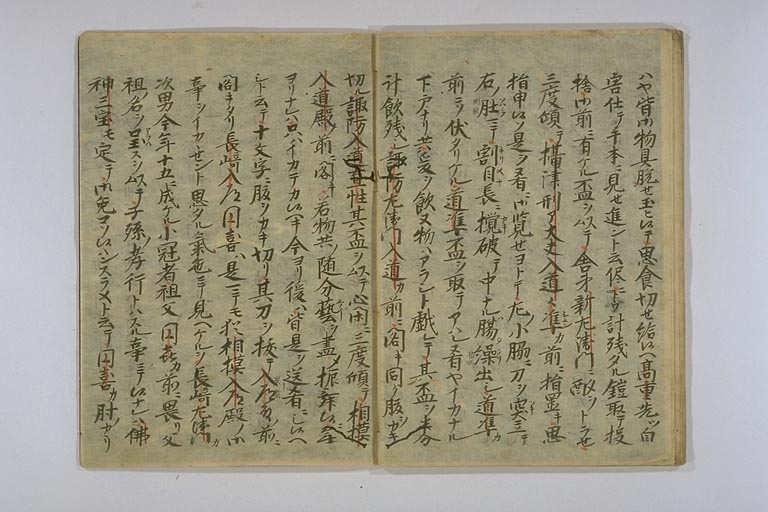 ハヤ皆御物具脱セ玉ヒヒテ思食切セ給ヘ高重先ツ自
害仕テ手本ニ見セ進ント云侭ニ下計残タル鎧取テ投
捨御前ニ有ケル盃ヲ以テ舎弟新左衛門ニ酌ヲトラセ
三度傾テ摂津刑ア大夫入道々準カ前ニ指置キ思
指申ソ是ヲ肴ニ御覧セヨトテ左ノ小脇ニ刀ヲ突立テ
右ノ肚マテ割目長ニ掻破テ中ナル腸繰出シ道準カ
前ニソ伏タリケル道準盃ヲ取テアハレ肴ヤイカナル
下戸ナリ共是ヲ飲ヌ物ハアラント戯レテ其盃ヲ半分
計飲残シ諏防左衛門入道カ前ニ閣キ同ク腹ヲカキ
切ル諏防入道直性其盃ヲ以テ心閑ニ三度傾テ相摸
入道殿ノ前ニ閣キ若物共ノ随分藝ヲ盡メ振舞ルニ年
ヨリナレハ只ハイカテカ候ヘキ今ヨリ後ハ皆是ヲ送肴ニシ候ヘ
シト云テ十文字ニ腹ヲカキ切リ其刀ヲ抜テ入道ノ前ニ
閣キタリ長崎入道円喜ハ是マテモ猶相摸入道殿ノ御
事ヲイカヽセント思タル氣色ニテ見ヘケルヲ長崎左衛門カ
次男今年十五ニ成ケル小冠者祖父円喜カ前ニ畏リ父
祖ノ名ヲ呈スヲ以テ子孫ノ孝行トハスル事ニテ候ナレハ佛
神三宝モ定テ御免コソ候ハンスラメト云テ円喜カ肘ノカヽリ